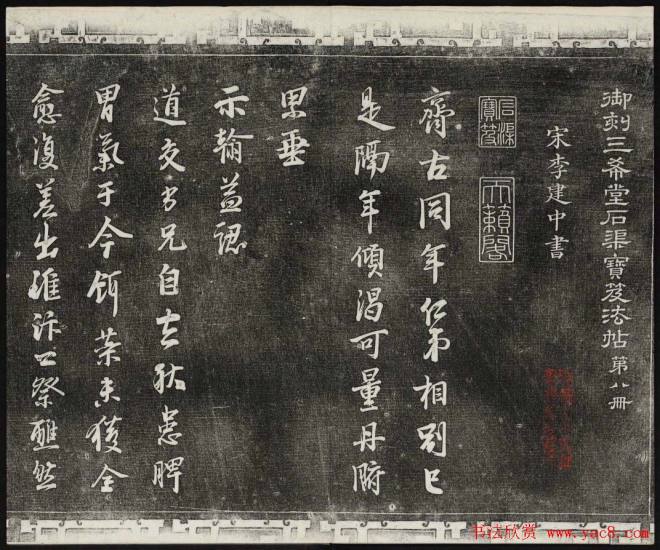 御刻三希堂石渠寶笈法帖 第八冊
宋李建中書
石渠寶笈
天籟閣
齊古同年仁弟相別已
是隔年傾渴可量丹腑
垂
示翰益認
道交劣兄自去秋患脾
胃氣于今餌藥未獲全
愈復差出雖公祭醮然
书法欣赏 www.yac8.com